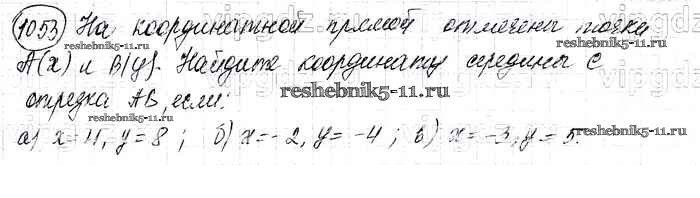 1053) На координатной прямой отмечены точки
A(x) и B(y). Найдите координату середины C
отрезка AB, если:
а) x=4, y=8; б) x=-2, y=-4; в) x=-3, y=5.
reshebnik5-11.ru
reshebnik5-11.ru
reshebnik5-11.ru
reshebnik5-11.ru
reshebnik5-11.ru
vipgdz